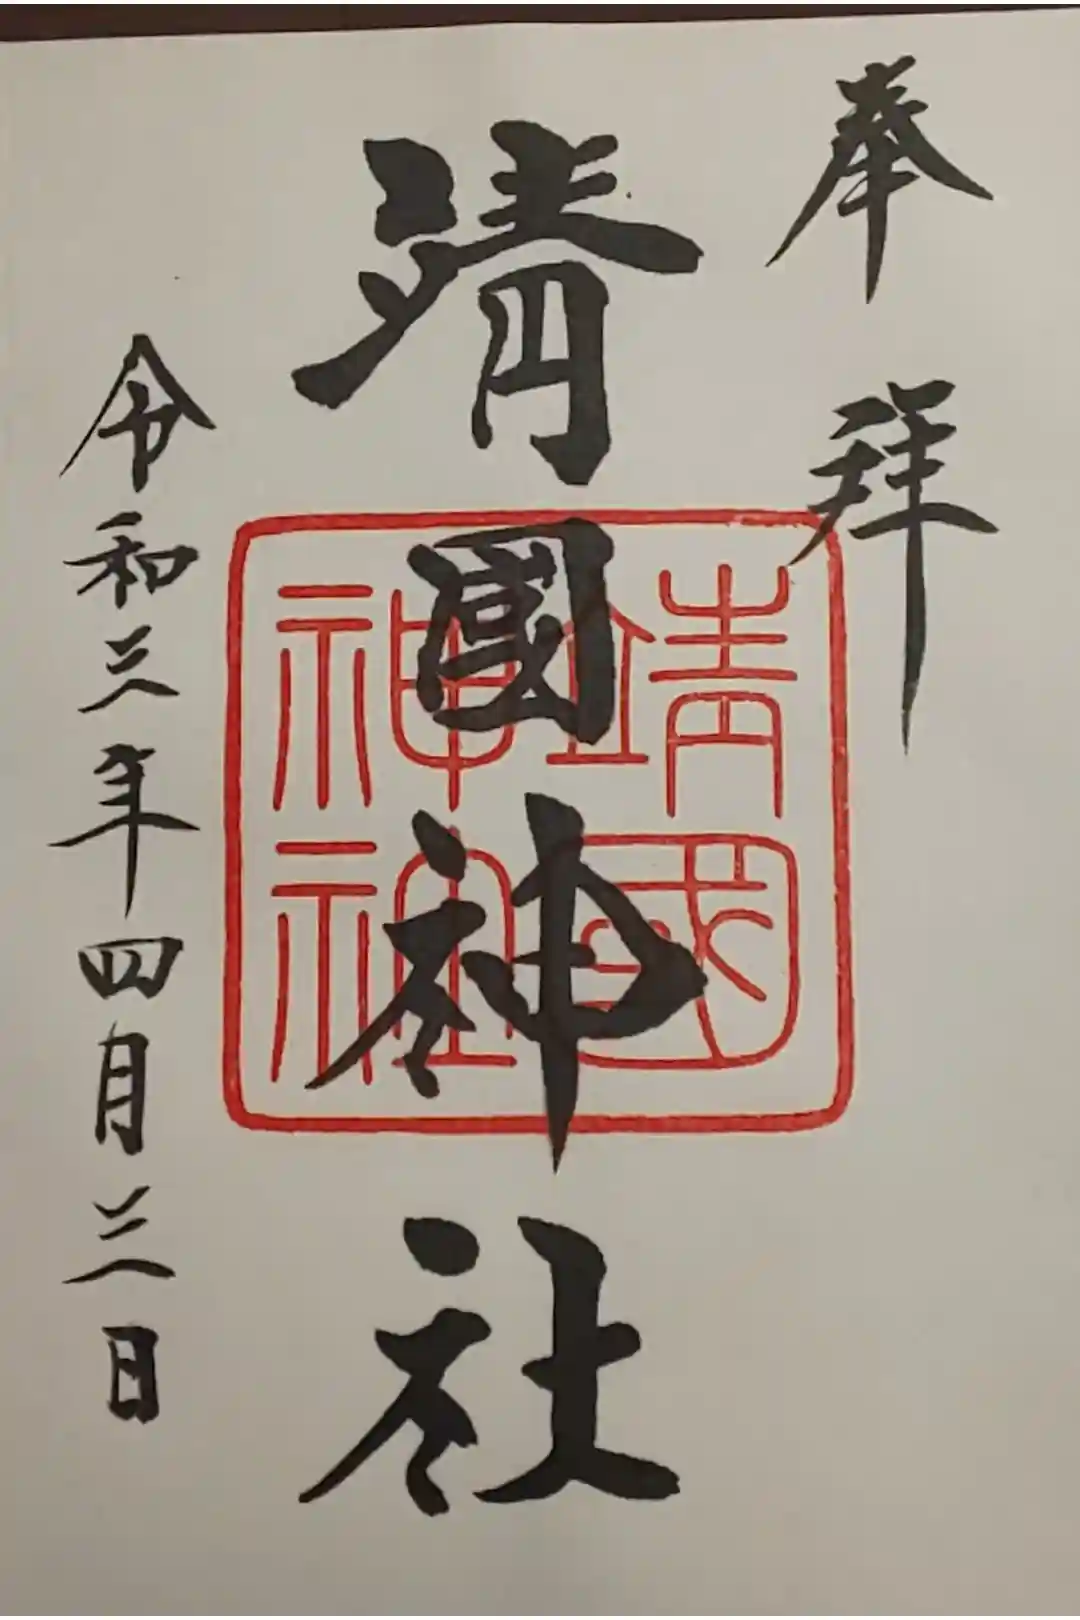 奉拜
靖國神社
靖國
神社
令和三年四月三日